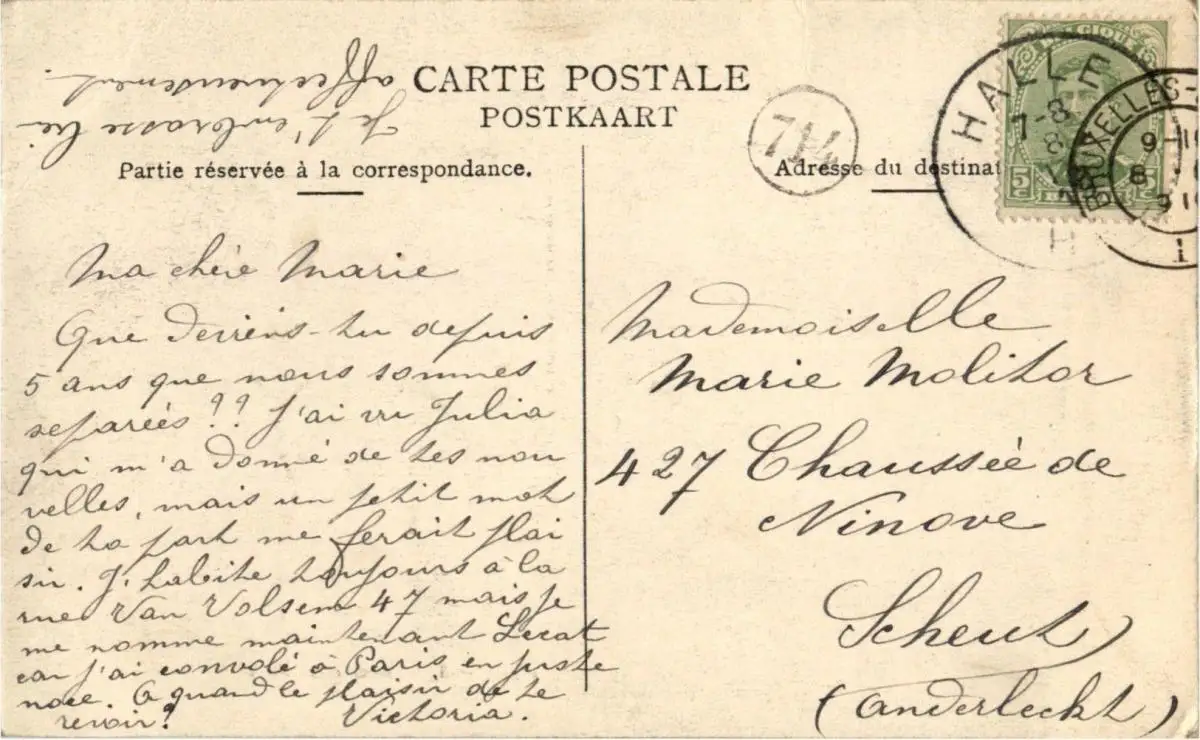 CARTE POSTALE
POSTKAART
Partie réservée à la correspondance.
Adresse du destinat
Ma chére Marie
Que deviens-tu depuis
5 ans que nous sommes
separées?? J'ai vu Julia
qui m'a donné de tes nou
velles, mais un petit mot
de ta part me ferait plai
sir. J'habite toujours à la
rue Van Volsem 47 mais je
me nomme maintenant Lecat
car j'ai convolé à Paris en juste
noce. A quand le plaisir de te
revoir?
Victoria.
Je t'embrasse bien
affectueusement.
Mademoiselle
Marie Molitor
427 Chaussée de
Ninove
Scheut
(Anderleckt)
714
HALLE
7-8
8
H
BRUXELLES-
9-10
8
1
5c